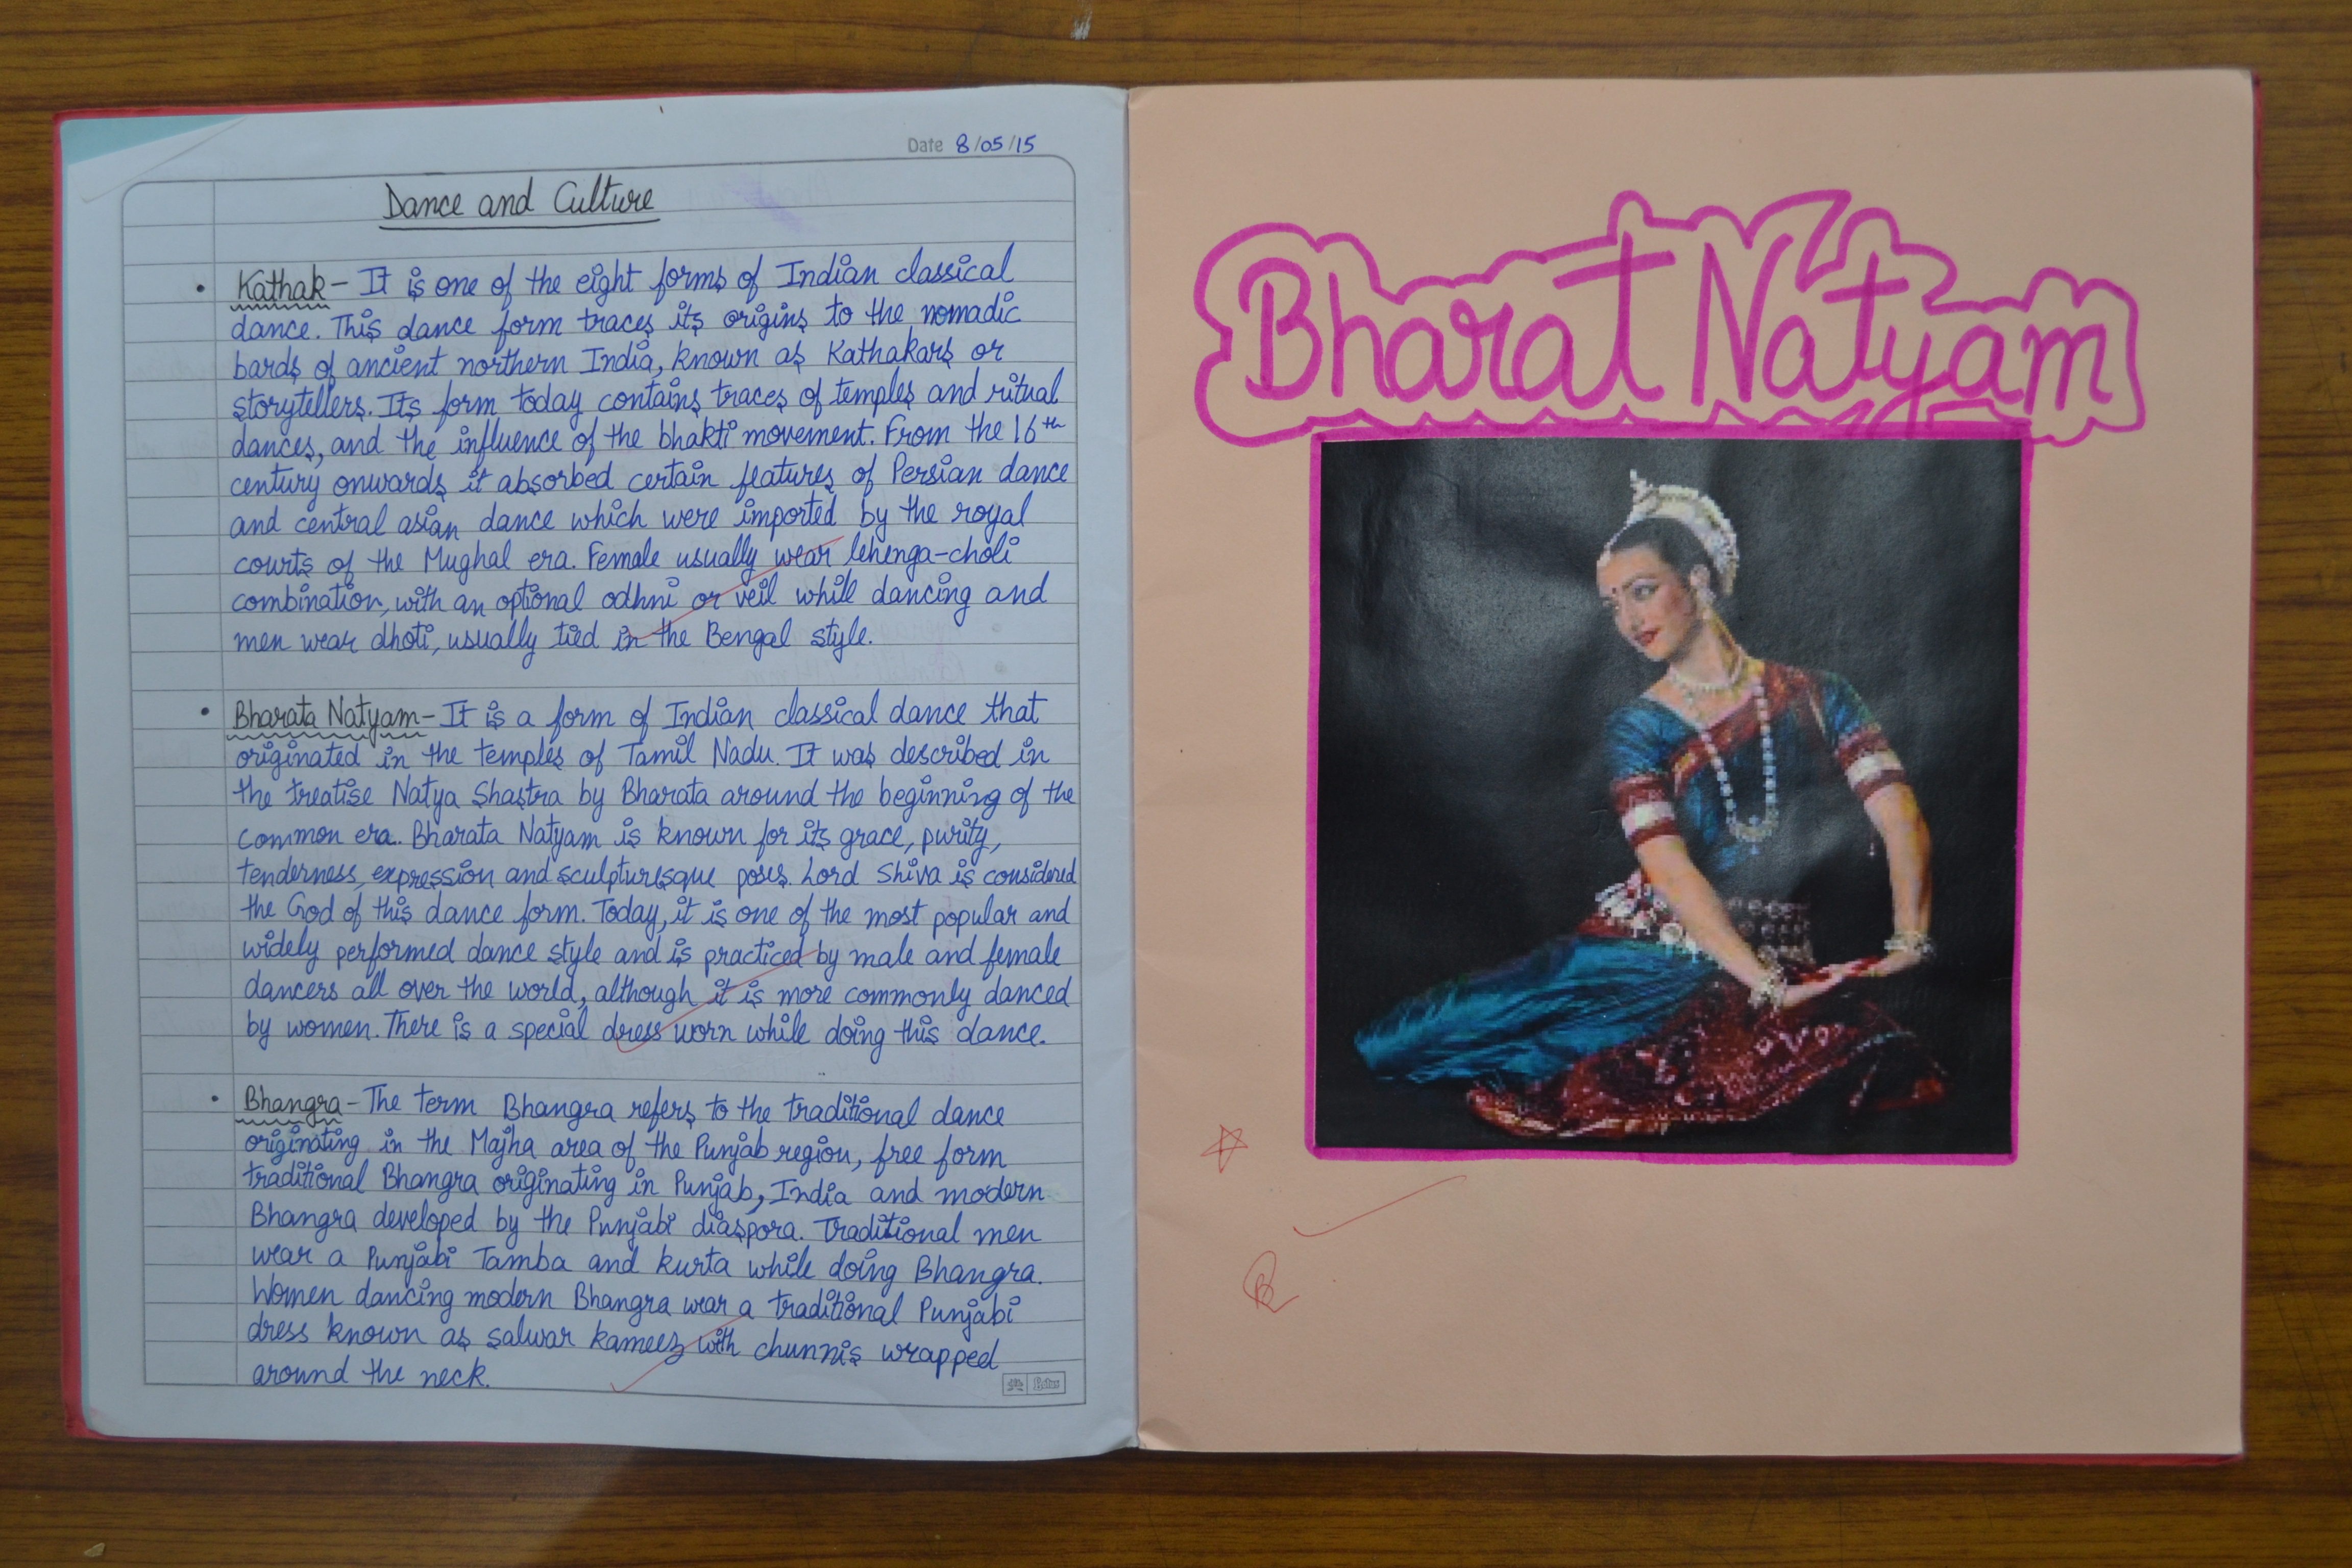 Date 8/05/15
Dance and Culture
• Kathak - It is one of the eight forms of Indian classical
dance. This dance form traces its origins to the nomadic
bards of ancient northern India, known as Kathakars or
storytellers. Its form today contains traces of temples and ritual
dances, and the influence of the bhakti movement. From the 16th
century onwards it absorbed certain features of Persian dance
and central asian dance which were imported by the royal
courts of the Mughal era. Female usually wear lehenga-choli
combination, with an optional odhni or veil while dancing and
men wear dhoti, usually tied in the Bengal style.
• Bharata Natyam - It is a form of Indian classical dance that
originated in the temples of Tamil Nadu. It was described in
the treatise Natya Shastra by Bharata around the beginning of the
common era. Bharata Natyam is known for its grace, purity,
tenderness, expression and sculpturesque poses. Lord Shiva is considered
the God of this dance form. Today, it is one of the most popular and
widely performed dance style and is practiced by male and female
dancers all over the world, although it is more commonly danced
by women. There is a special dress worn while doing this dance.
• Bhangra - The term Bhangra refers to the traditional dance
originating in the Majha area of the Punjab region, free form
traditional Bhangra originating in Punjab, India and modern
Bhangra developed by the Punjabi diaspora. Traditional men
wear a Punjabi Tamba and kurta while doing Bhangra.
Women dancing modern Bhangra wear a traditional Punjabi
dress known as salwar kameez with chunnis wrapped
around the neck.
Bharat Natyam